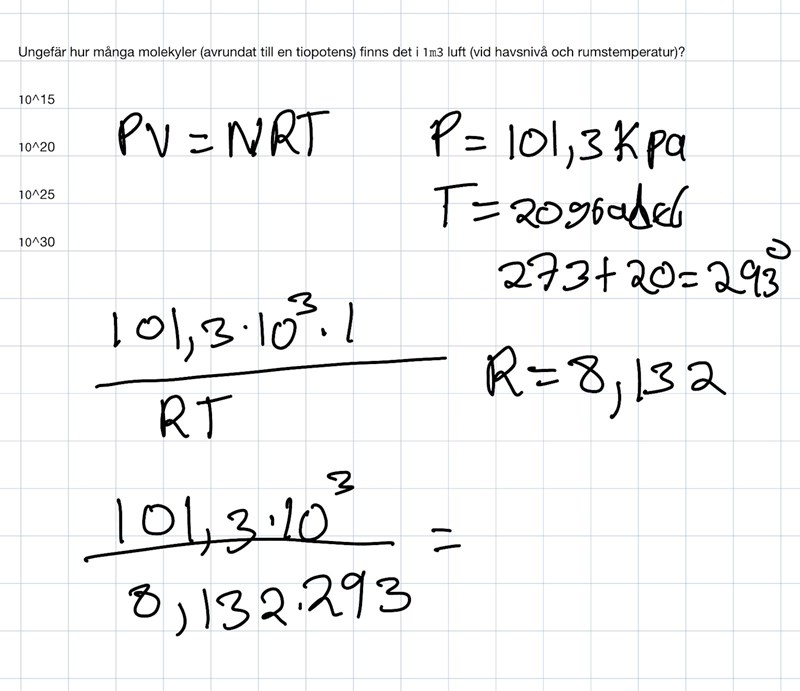 Ungefär hur många molekyler (avrundat till en tiopotens) finns det i 1m3 luft (vid havsnivå och rumstemperatur)?
10^15
10^20
10^25
10^30
PV = NRT
P = 101,3 Kpa
T = 20 grader
273 + 20 = 293°
101,3 · 10³ · 1
RT
R = 8,132
101,3 · 10³ =
8,132 · 293